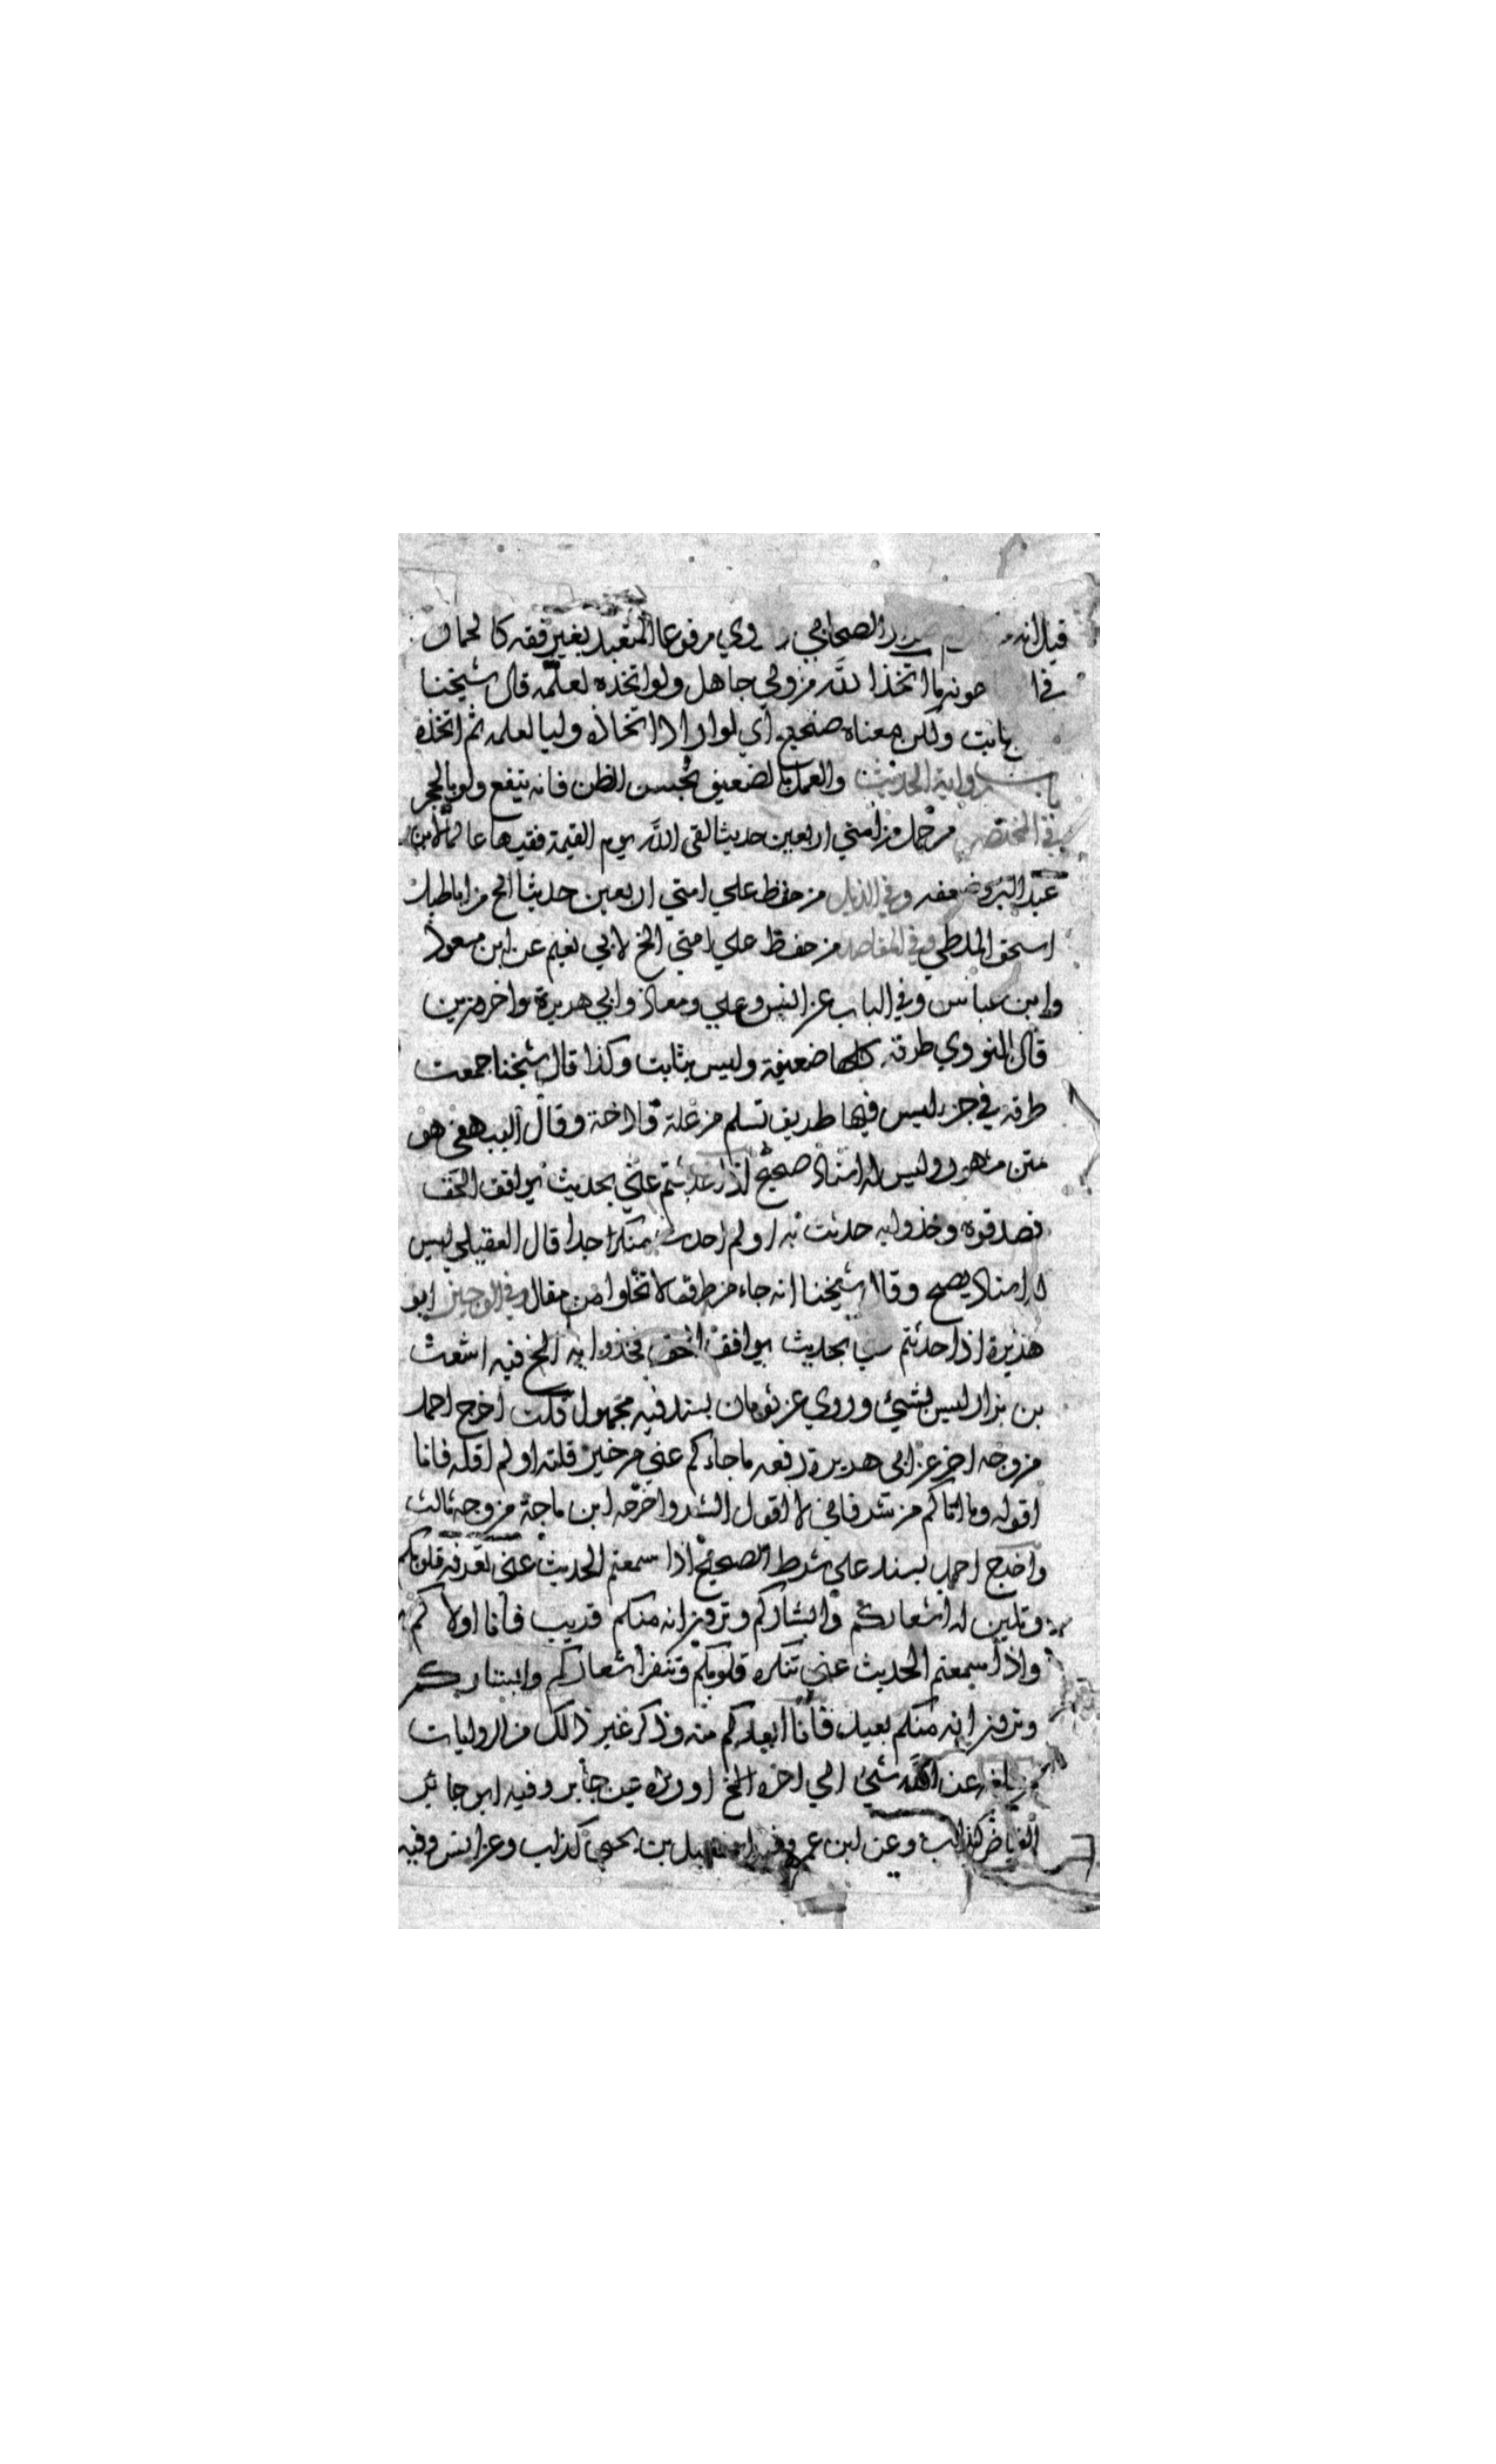 قيل انه الصحابي روي مرفوعا المتعبد بغير فقه كالحمار
في ا حونه ما اتخذ الله من ولي جاهل ولو اتخذه لعلمه قال شيخنا
بثابت ولكن معناه صحيح اي لو اراد اتخاذه وليا لعلمه ثم اتخذه
باب رواية الحديث والعمل بالضعيف بحسن الظن فانه ينفع ولو بالحجر
في المختصر من حمل من امتي اربعين حديثا لقي الله يوم القيمة فقيها عالما لابن
عبد البر وضعفه وفي الذيل من حفظ علي امتي اربعين حديثا الخ من اباطيل
اسحق الملطي وفي المقاصد من حفظ علي امتي الخ لابي نعيم عن ابن مسعود
وابن عباس وفي الباب عن انس وعلي ومعاذ وابي هريرة واخرين
قال النووي طرقه كلها ضعيفة وليس بثابت وكذا قال شيخنا جمعت
طرقه في جزء ليس فيها طريق تسلم من علة قادحة وقال البيهقي هو
متن مشهور وليس له اسناد صحيح اذا حدثتم عني بحديث يوافق الحق
فصدقوه وخذوا به حدثت به او لم احدث منكر جدا قال العقيلي ليس
له اسناد يصح وقال شيخنا انه جاء من طرق لا تخلوا من مقال وفي الوجيز ابو
هريرة اذا حدثتم بحديث يوافق الحق فخذوا به الخ فيه اشعث
بن بزار ليس بشيئ وروي عن ثوبان بسند فيه مجهول قلت اخرج احمد
من وجه اخر عن ابي هريرة رفعه ما جاءكم عني من خير قلته او لم اقله فانا
اقوله وما اتاكم من شر فاني لا اقول الشر واخرجه ابن ماجة من وجه ثالث
واخرج احمد بسند علي شرط الصحيح اذا سمعتم الحديث عني تعرفه قلوبكم
وتلين له اشعاركم وابشاركم وترون انه منكم قريب فانا اولاكم
واذا سمعتم الحديث عني تنكره قلوبكم وتنفر اشعاركم وابشاركم
وترون انه منكم بعيد فانا ابعدكم منه وذكر غير ذالك من الروايات
بلغه عن الله شيئ الي اخره الخ اورده عن جابر وفيه ابو جابر
البياضي كذاب وعن ابن عمر وفيه اسمعيل بن يحيى كذاب وعن انس وفيه